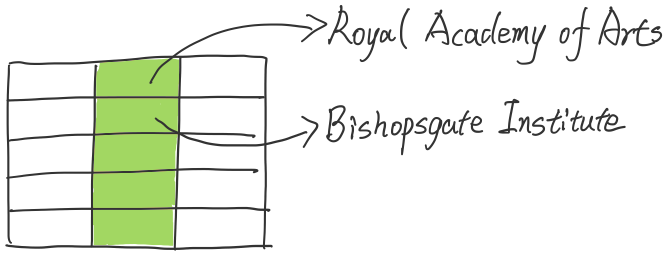 Royal Academy of Arts
Bishopsgate Institute